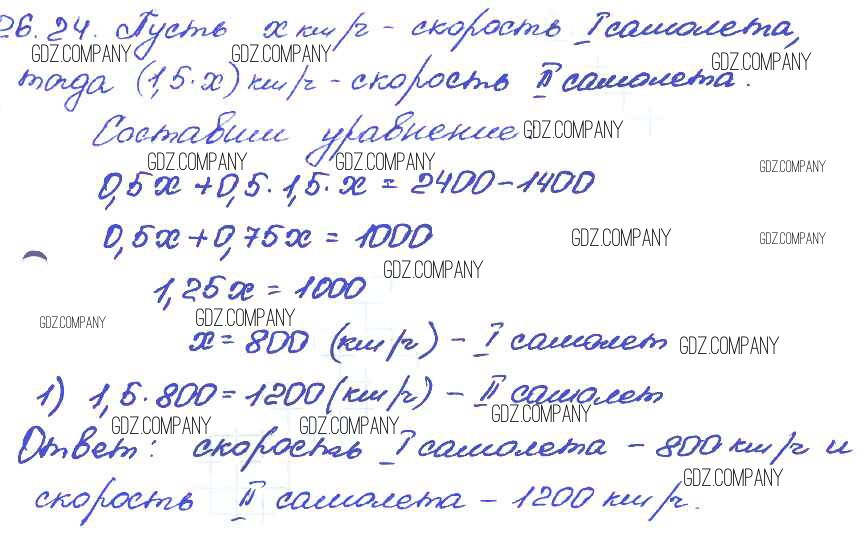 26.24. Пусть x км/ч - скорость I самолета,
GDZ.COMPANY GDZ.COMPANY GDZ.COMPANY
тогда (1,5·x) км/ч - скорость II самолета.
Составим уравнение GDZ.COMPANY
GDZ.COMPANY GDZ.COMPANY GDZ.COMPANY
0,5x + 0,5·1,5·x = 2400-1400
0,5x + 0,75x = 1000 GDZ.COMPANY GDZ.COMPANY
GDZ.COMPANY
1,25x = 1000
GDZ.COMPANY GDZ.COMPANY
x = 800 (км/ч) - I самолет GDZ.COMPANY
1) 1,5·800 = 1200 (км/ч) - II самолет
GDZ.COMPANY GDZ.COMPANY GDZ.COMPANY
Ответ: скорость I самолета - 800 км/ч и
GDZ.COMPANY
скорость II самолета - 1200 км/ч.